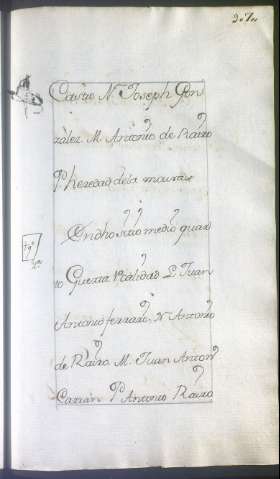 207
Castro N Joseph Gon
zalez M. Antonio de Rairo
P. heredad dela mouras
En dho sitio medio quar
to Guerta 1ª calidad L. Juan
Antonio ferraro. N Antonio
de Rairo. M. Juan Anton
P. Antonio Rairo